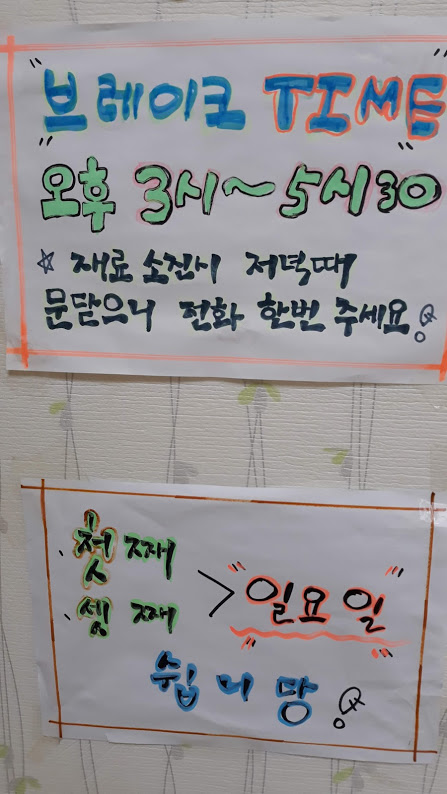 " 브레이크 TIME "
오후 3시~5시30
☆ 재료 소진시 저녁때
문닫으니 전화 한번 주세요
첫째
셋째 > "일요일"
쉽니당